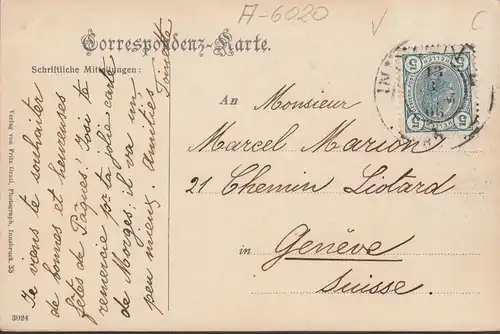 A-6020
Correspondenz-Karte.
Schriftliche Mitteilungen:
An
Monsieur
Marcel Marion
21 Chemin Liotard
in Genève
Suisse.
Je viens te souhaiter
de bonnes et heureuses
fêtes de Pâques! Sosi te
remercie pr ta jolie carte
de Morges; il va un
peu mieux. Amitiés
Verlag von Fritz Gratl, Photograph, Innsbruck 35
3024
5 5
5 5